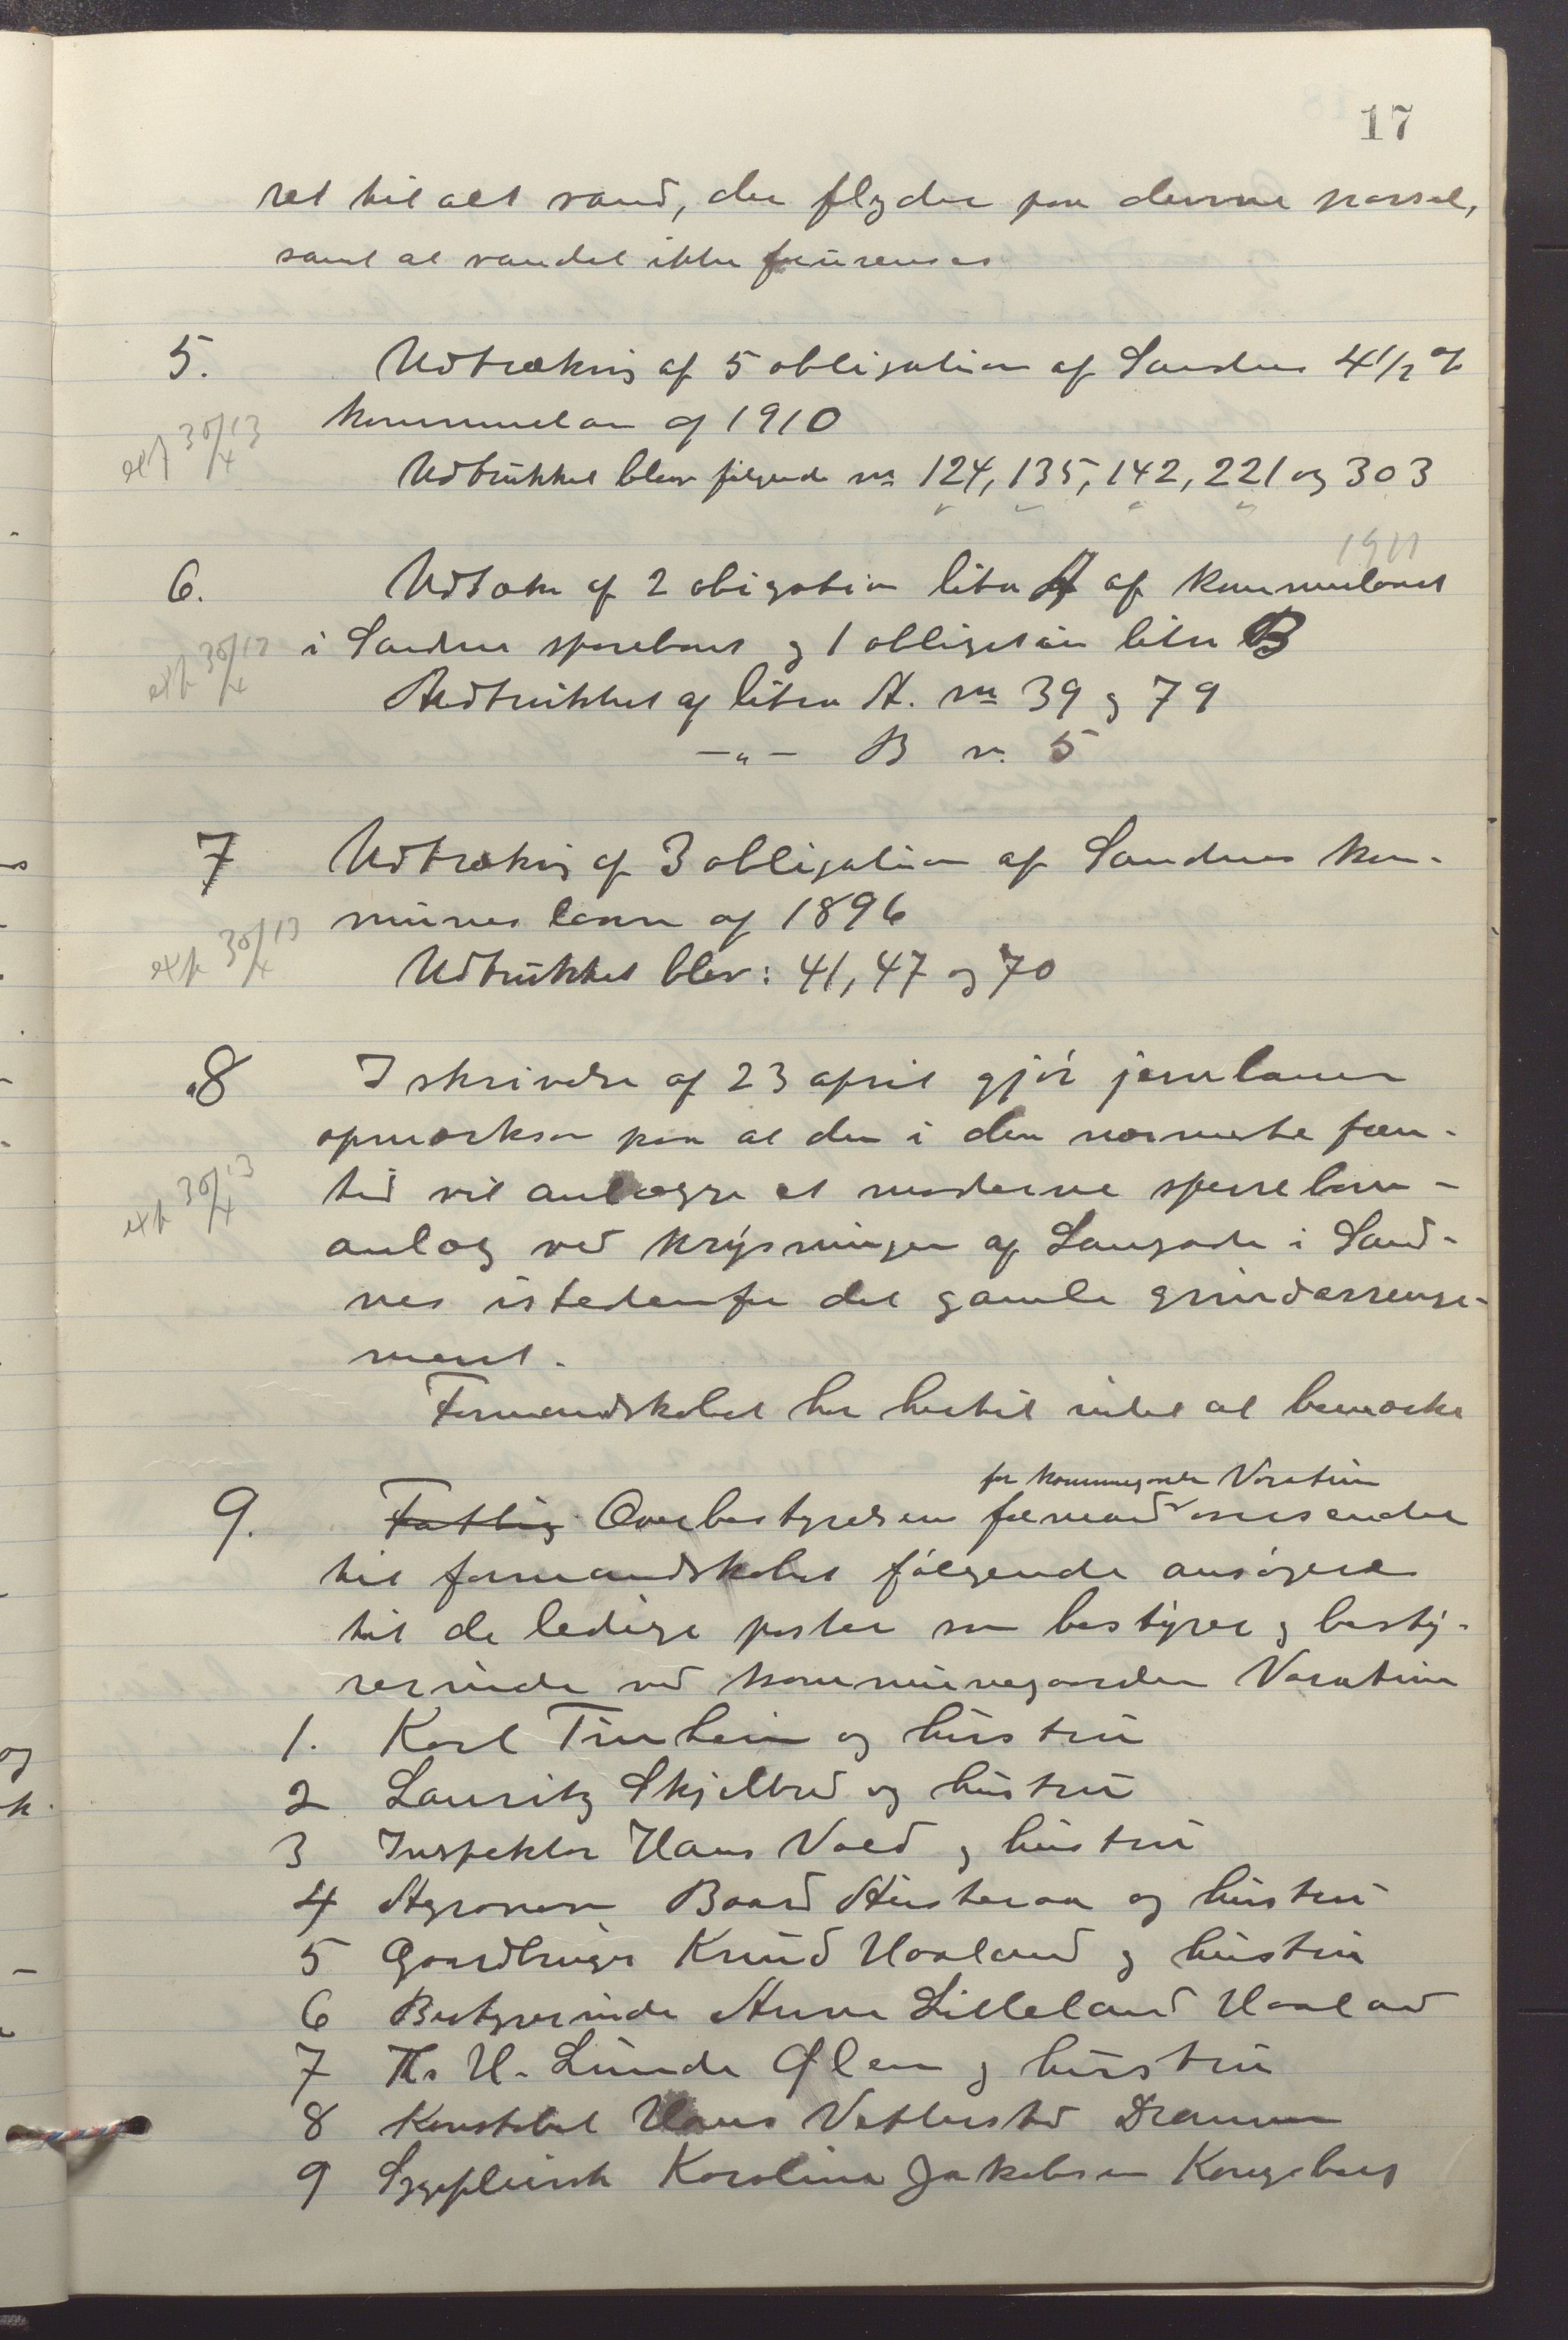 17
ret til alt vand, der flyder paa denne parsel,
samt at vandet ikke forurenses
5. Udtrækning af 5 obligation af Sandnes 4 1/2 %
exp 30/4 13
kommunelaan af 1910
Udtrukket blev følgende nr 124, 135, 142, 221 og 303
1911
6. af 2 obligation litra A af kommunelaanet
exp 30/4 13
i Sandnes sparebank og 1 obligation litra B
Udtrukket af litra A. nr 39 og 79
—"— B nr. 5
7 Udtrækning af 3 obligation af Sandnes kom-
exp 30/4 13
munes laan af 1896
Udtrukket blev: 41, 47 og 70
8 I skrivelse af 23 april gjør jernbanen
opmærksom paa at den i den nærmeste frem-
exp 30/4 13
tid vil anlægge et moderne sperrebom-
anlæg ved krysningen af Langgade i Sand-
nes istedenfor det gamle grindarrenge-
ment.
Formandskabet har hertil intet at bemærke
for kommunegaarden Varatun
9. Fattig Overbestyrelsens formand oversender
til formandskabet følgende ansøgere
til de ledige poster som bestyrer og besty-
rerinde ved kommunegaarden Varatun
1. Karl og hustru
2 Lauritz Skjelbred og hustru
3 Inspektør Hans Vold og hustru
4 Agronom Baard og hustru
5 Gaardbruger Knud Haaland og hustru
6 Bestyrerinde Anna Lilleland Haaland
7 Th. H. Lunde Ølen og hustru
8 Konstabel Hans Drammen
9 Sygepleiersk Karoline Jakobsen Kongsberg